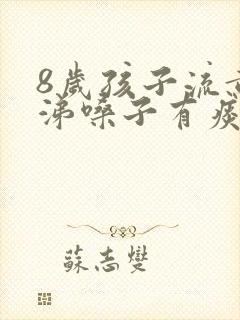 8歲孩子流黃
涕嗓子有痰
蘇志燮